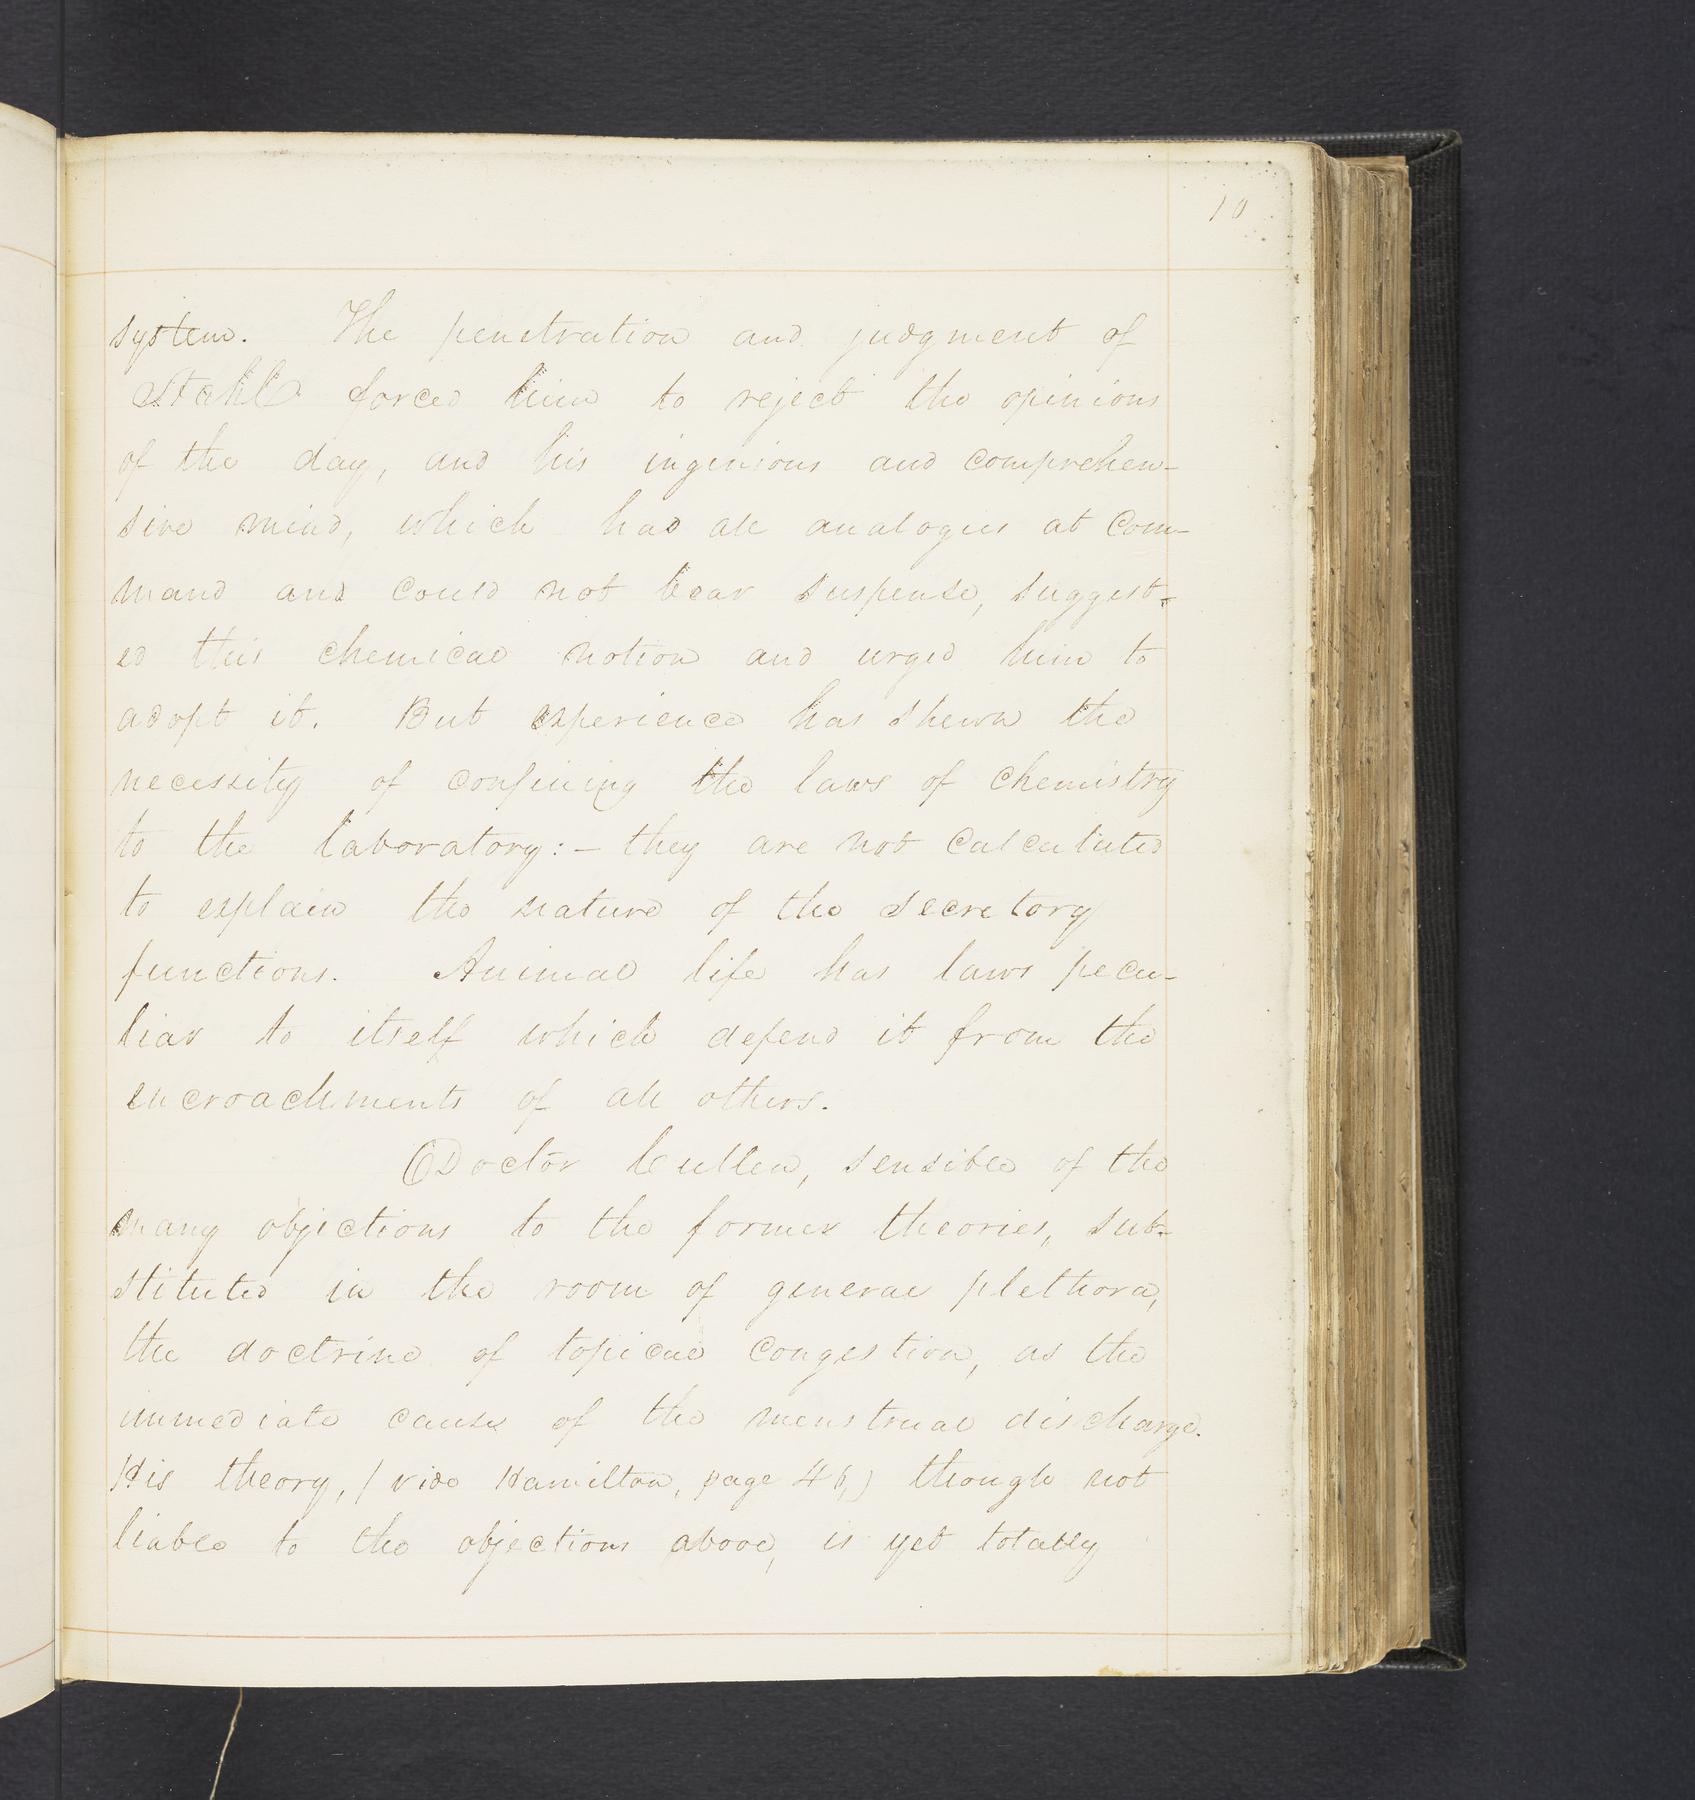 10
system. The penetration and judgment of
Stahl forced him to reject the opinions
of the day, and his ingenious and comprehen-
sive mind, which had all analogies at com-
mand and could not bear suspense, suggest-
ed this chemical notion and urged him to
adopt it. But experience has shewn the
necessity of confining the laws of chemistry
to the laboratory:- they are not calculated
to explain the nature of the secretory
functions. Animal life has laws pecu-
liar to itself which defend it from the
encroachments of all others.
Doctor Cullen, sensible of the
many objections to the former theories, sub-
stituted in the room of general plethora,
the doctrine of topical congestion, as the
immediate cause of the menstrual discharge.
His theory, (vide Hamilton, page 46,) though not
liable to the objections above, is yet totally